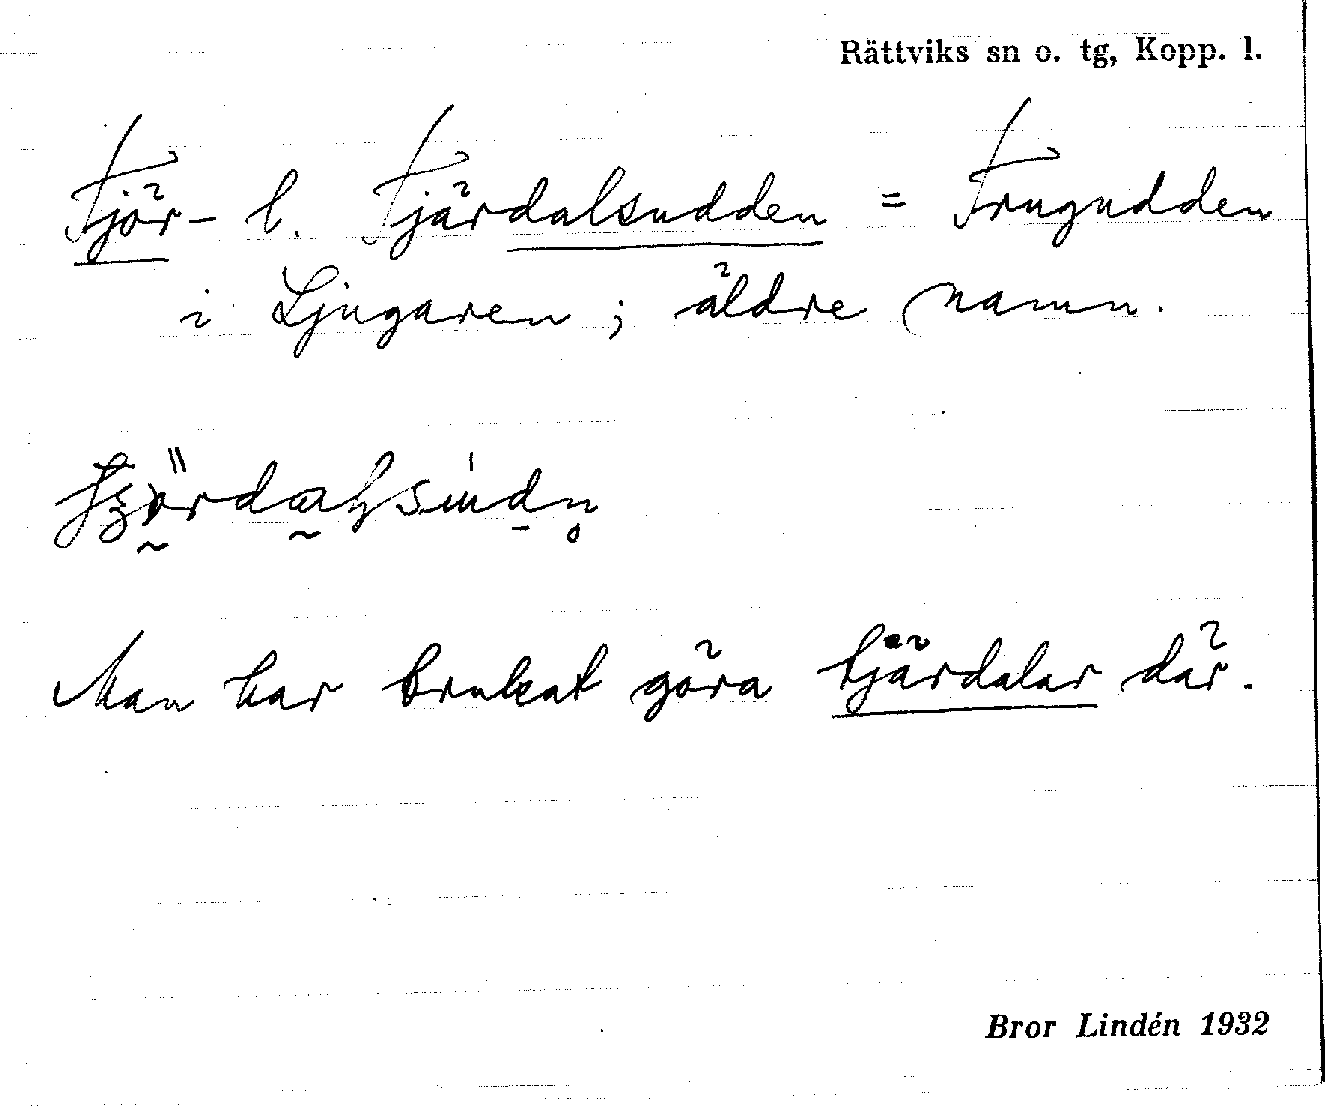 Rättviks sn o. tg, Kopp. l.
Tjör- l. Tjärdalsudden = Trugudden
i Ljugaren; äldre namn.
Man har brukat göra tjärdalar där.
Bror Lindén 1932